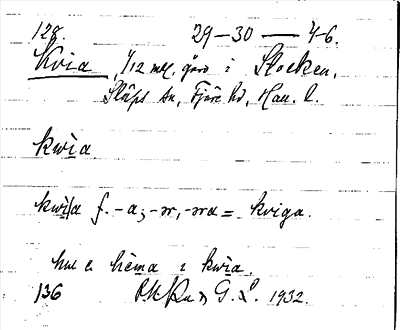 128. 29—30 — 4-6.
Kvia, 1/12 mtl. gård i Stocken,
Släps sn, Fjäre hd, Hall. l.
kwia
kwia f. -a; -ɔr, -ɔra = kviga.
hu e hema i kwia.
136 G. L. 1932.